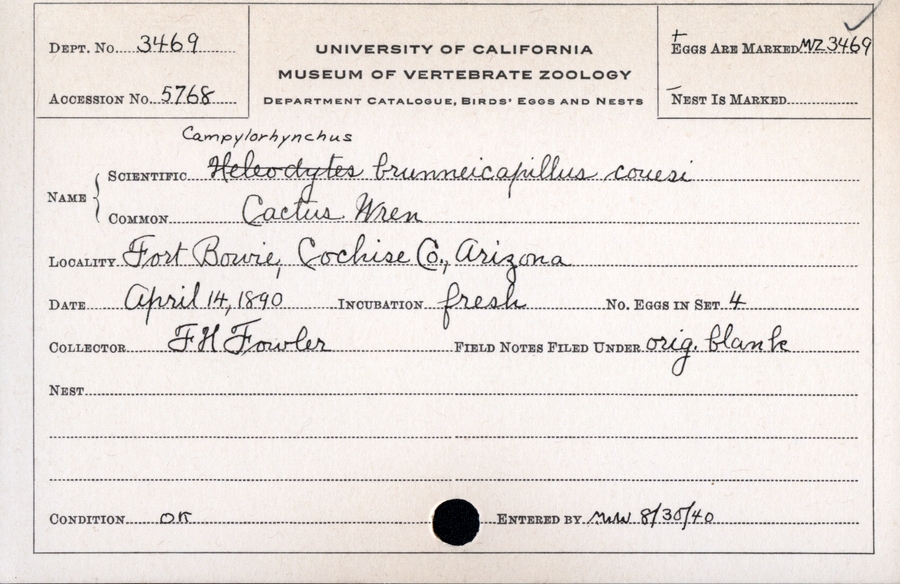 DEPT. NO. 3469
ACCESSION NO. 5768
UNIVERSITY OF CALIFORNIA
MUSEUM OF VERTEBRATE ZOOLOGY
DEPARTMENT CATALOGUE, BIRDS' EGGS AND NESTS
+ EGGS ARE MARKED MVZ 3469
- NEST IS MARKED
Campylorhynchus
NAME { SCIENTIFIC Heleodytes brunneicapillus couesi
COMMON Cactus Wren
LOCALITY Fort Bowie, Cochise Co., Arizona
DATE April 14, 1890 INCUBATION fresh NO. EGGS IN SET 4
COLLECTOR F H Fowler FIELD NOTES FILED UNDER orig. blank
NEST
CONDITION OK ENTERED BY 8/30/40